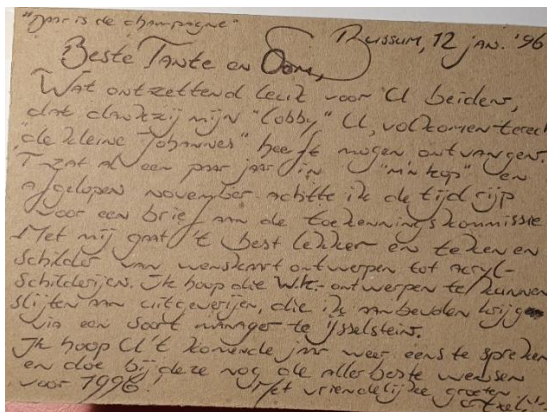 "Daar is de champagne"
Bussum, 12 jan. '96
Beste Tante en Oom,
Wat ontzettend leuk voor U beiden,
dat dankzij mijn "lobby" U, volkomen terecht
"de kleine Johannes" heeft mogen ontvangen.
'T zat al een paar jaar in "m'n kop" en
afgelopen november achtte ik de tijd rijp
voor een brief aan de toekenningskommissie
Met mij gaat 't best lekker en teken en
schilder van wenskaartontwerpen tot acryl-
schilderijen. Ik hoop die WK.-ontwerpen te kunnen
slijten aan uitgeverijen, die ik aanbevolen krijg
via een soort manager te IJsselstein.
Ik hoop U 't komende jaar weer eens te spreken
en doe bij deze nog de allerbeste wensen
voor 1996! Met vriendelijke groeten,